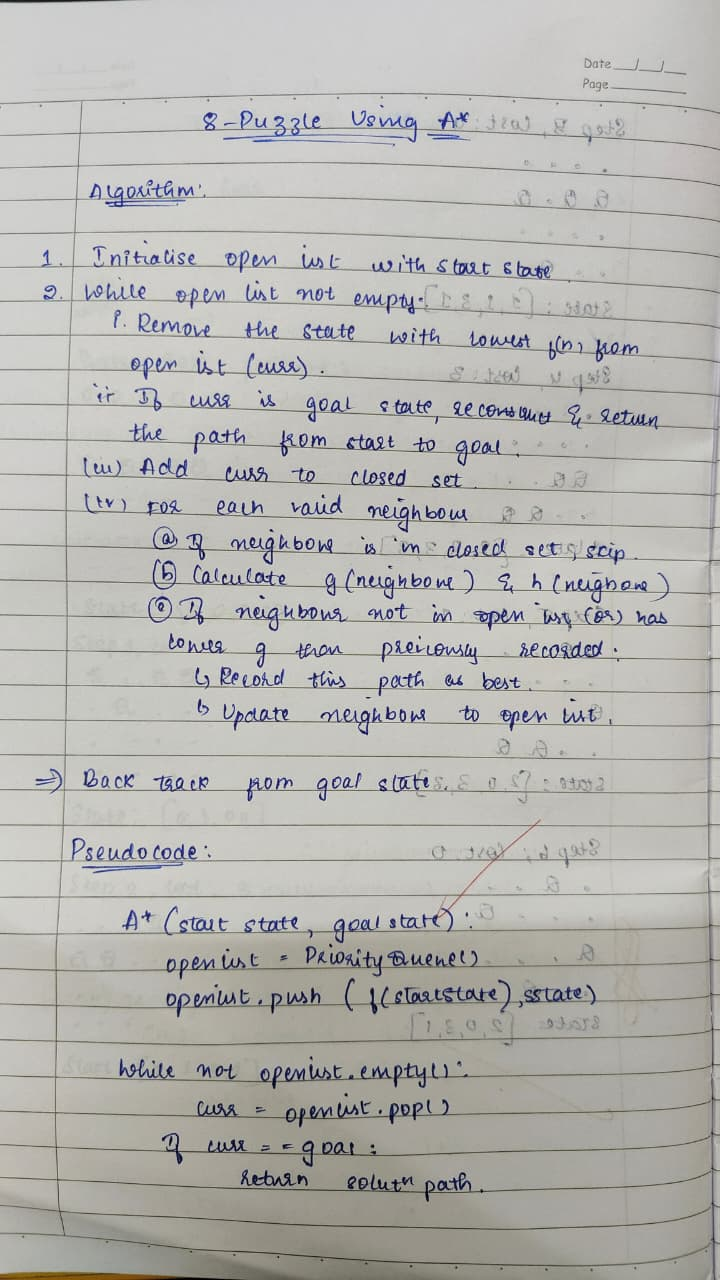 Date __/__/__
Page
8-Puzzle Using A*
Algorithm:
1. Initialise open list with start state
2. While open list not empty:
i. Remove the state with lowest f(n) from
open list (curr).
ii If curr is goal state, reconstruct & return
the path from start to goal.
(iii) Add curr to closed set.
(iv) For each valid neighbour
(a) If neighbour is in closed set, skip.
(b) Calculate g(neighbour) & h(neighbour)
(c) If neighbour not in open list (or) has
lower g than previously recorded:
↳ Record this path as best.
↳ Update neighbour to open list.
⇒ Back track from goal state.
Pseudocode:
A* (start state, goal state):
openlist = PriorityQueue()
openlist.push (f(startstate), sstate)
While not openlist.empty():
curr = openlist.pop()
If curr == goal:
return solutn path.